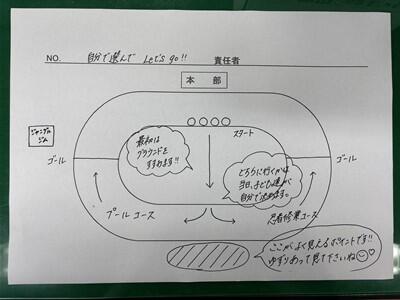 NO. 自分で選んで Let's go!! 責任者
本 部
ジャングルジム
スタート
最初は
グラウンドを
すすめます!!
ゴール
ゴール
どちらに行くかは
当日、子ども達が
自分で決めます。
プールコース
忍者修業コース
ここがよく見えるポイントです!!
ゆずりあって見て下さいね